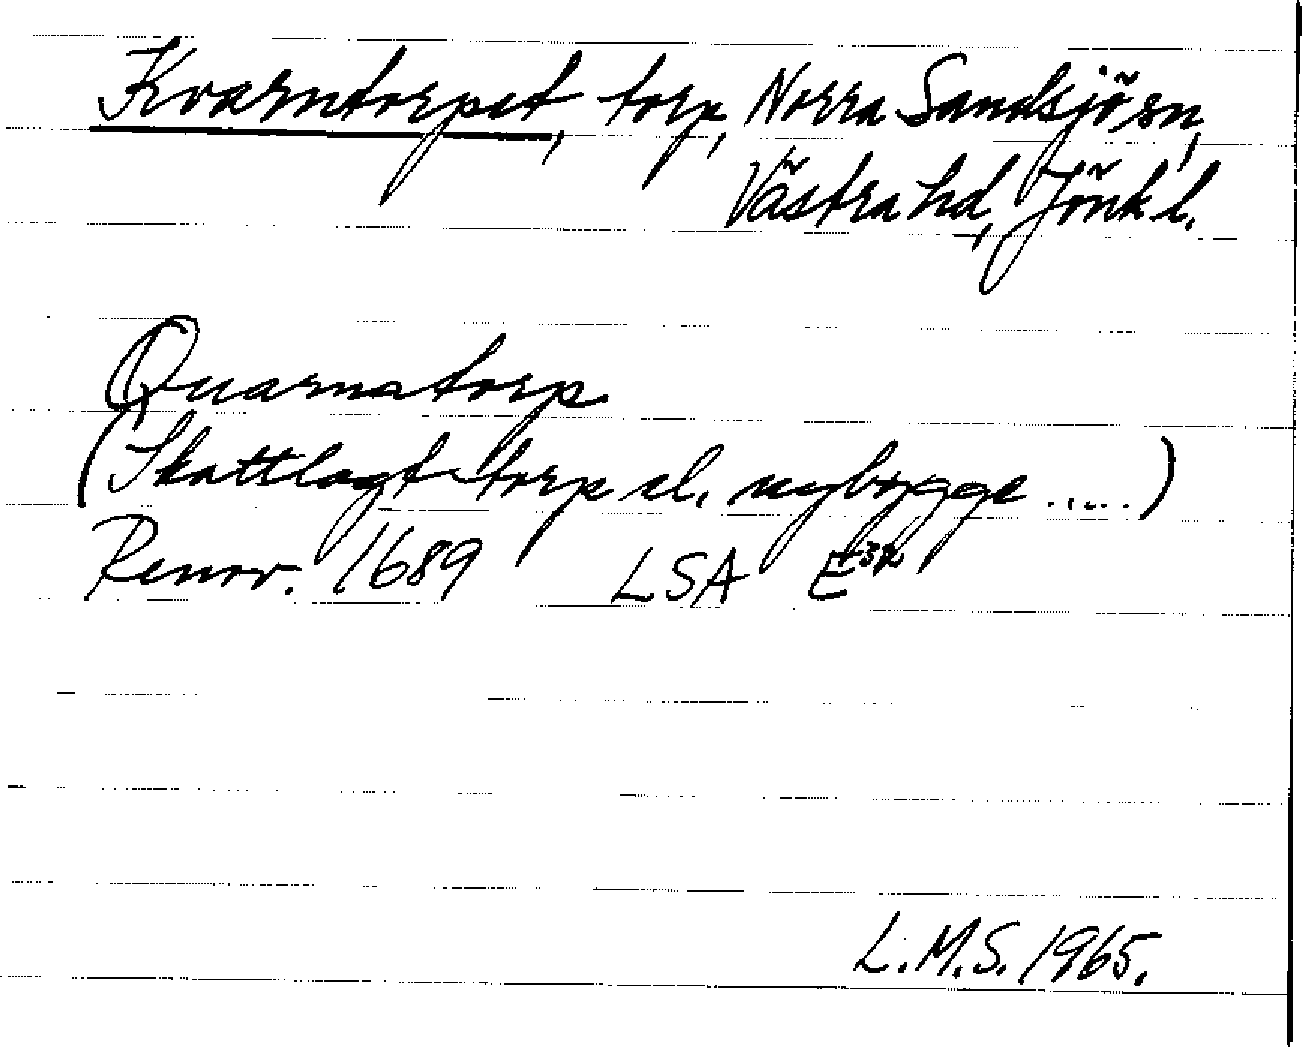 Kvarntorpet, torp, Norra Sandsjö sn,
Västra hd, Jönk l.
Quarnatorp
(Skattlagt torp el. nybygge .....)
Renov. 1689 LSA
L.M.S. 1965.